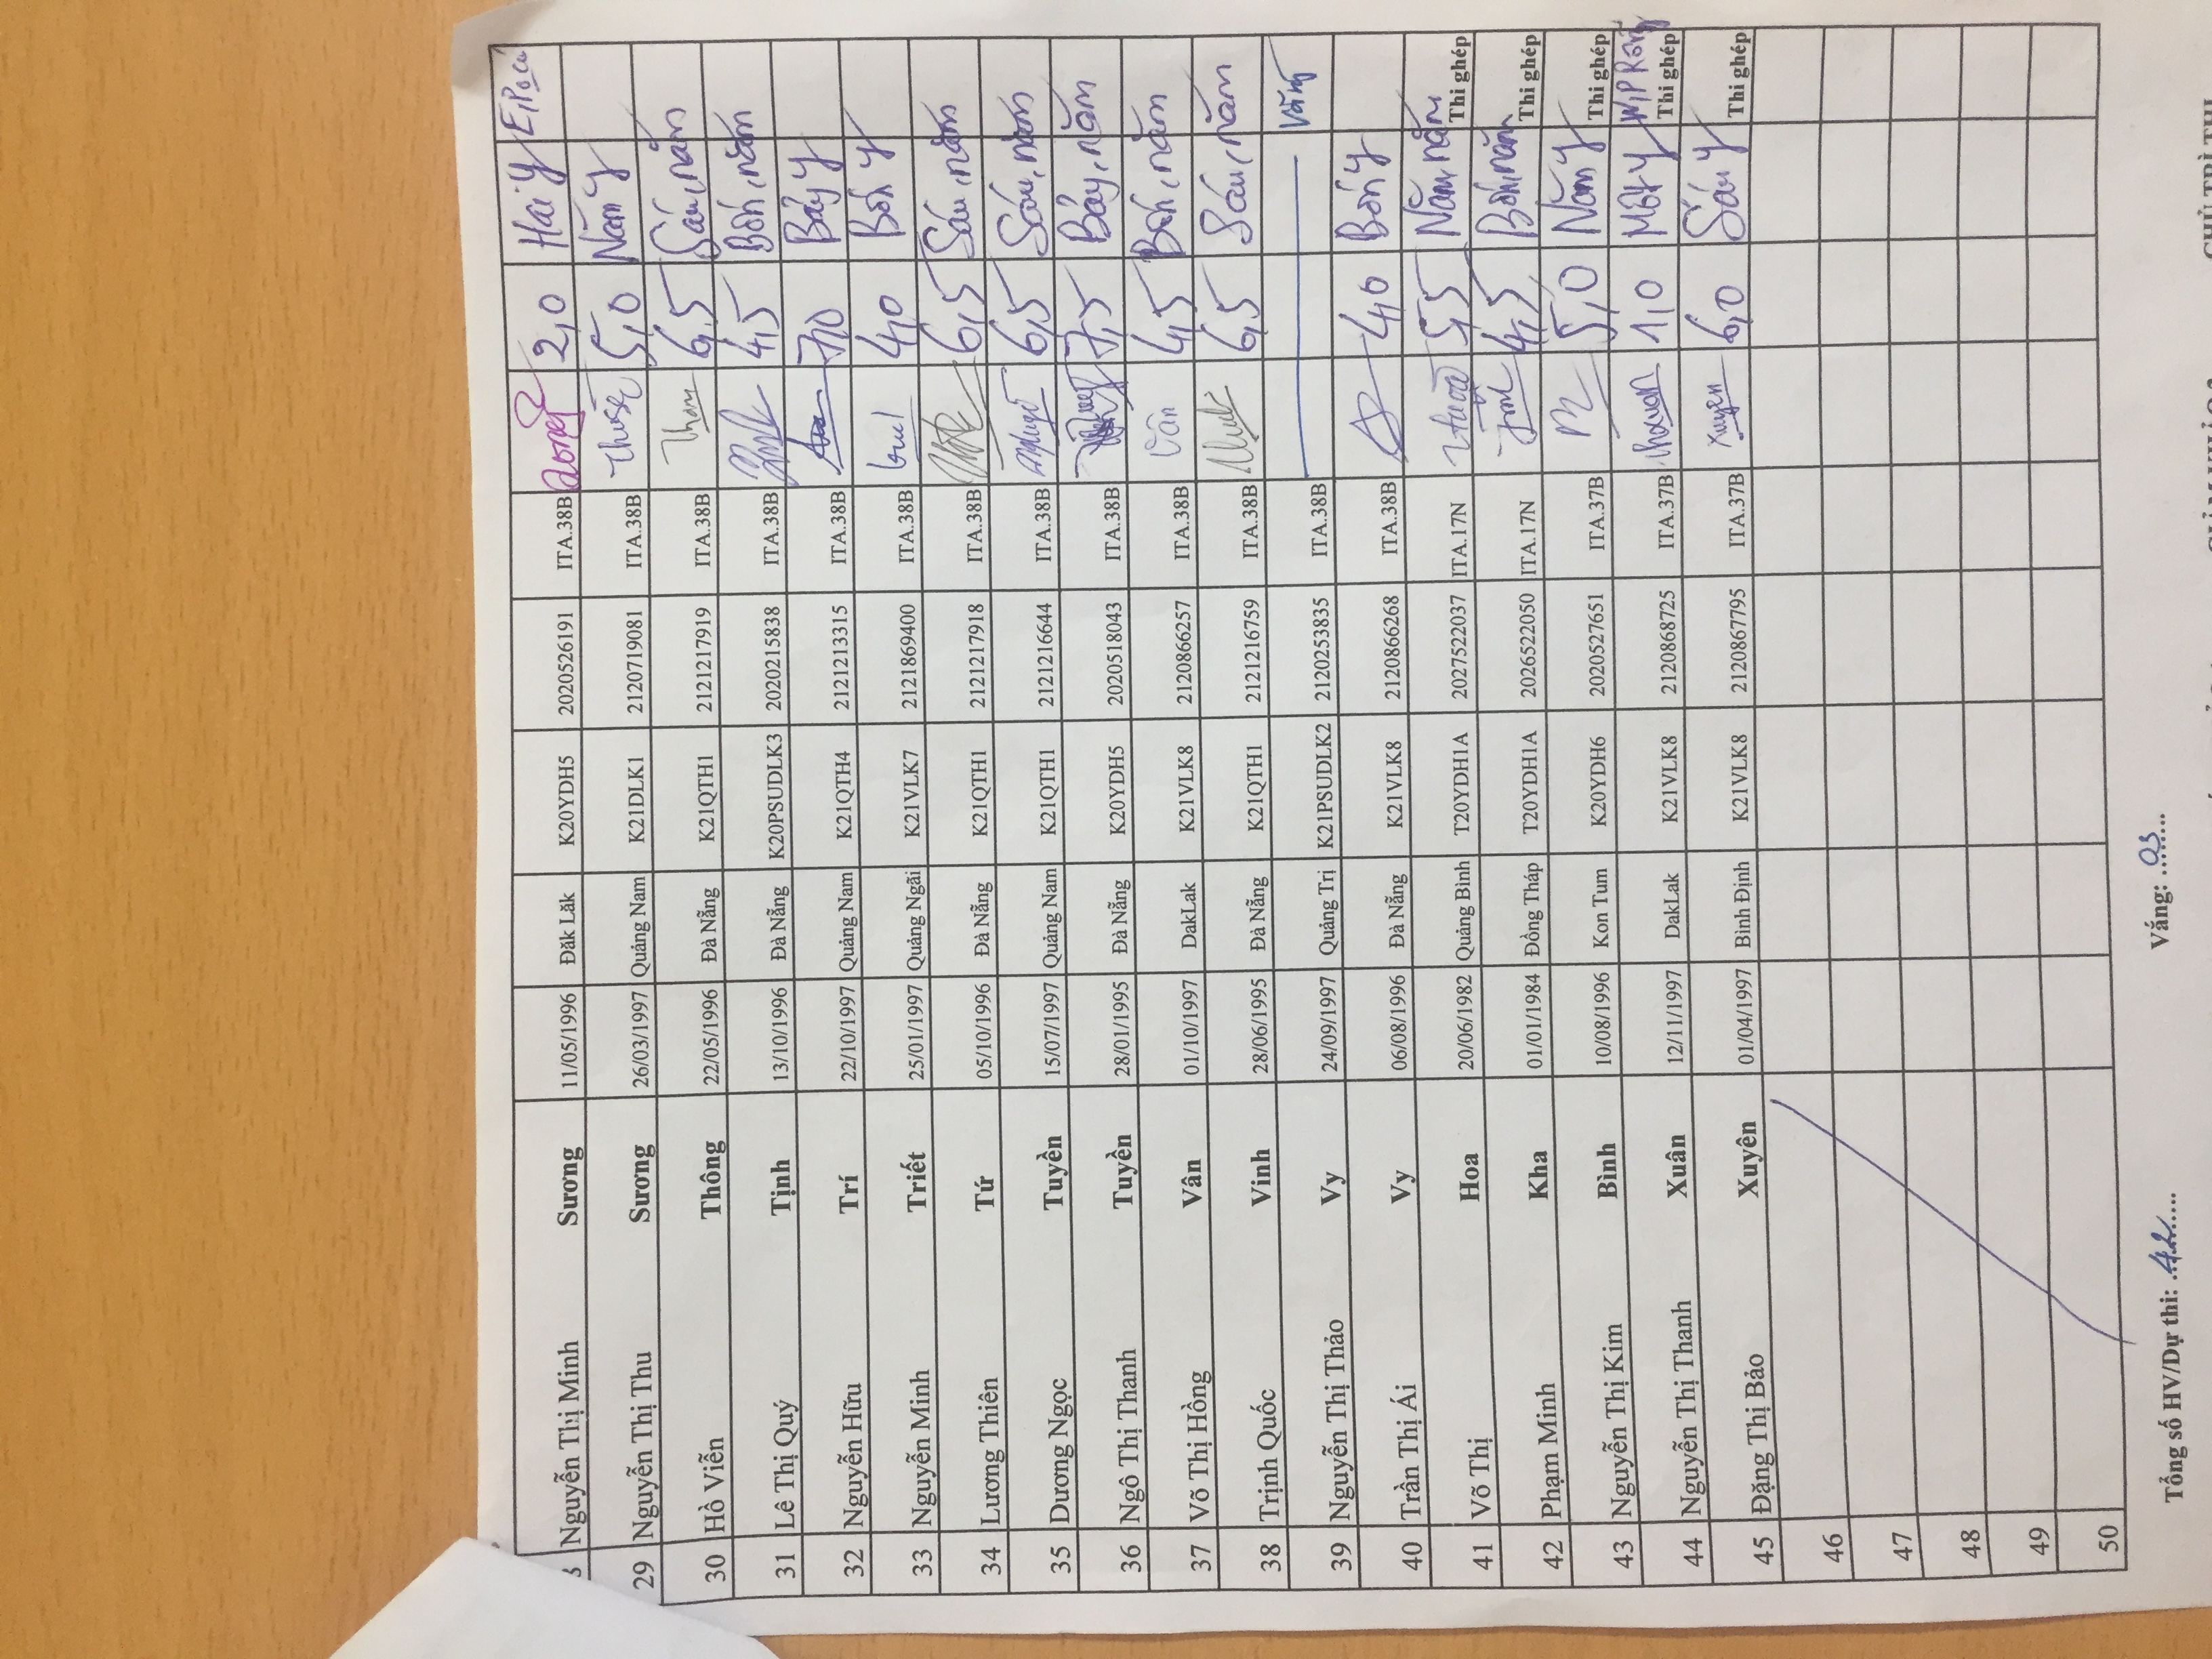 Nguyễn Thị Minh Sương 11/05/1996 Đăk Lăk K20YDH5 2020526191 ITA.38B 2,0 Hai
29 Nguyễn Thị Thu Sương 26/03/1997 Quảng Nam K21DLK1 2120719081 ITA.38B 5,0 Năm
30 Hồ Viễn Thông 22/05/1996 Đà Nẵng K21QTH1 2121217919 ITA.38B Tham 6,5 Sáu, năm
31 Lê Thị Quý Tịnh 13/10/1996 Đà Nẵng K20PSUDLK3 2020215838 ITA.38B 4,5 Bốn, năm
32 Nguyễn Hữu Trí 22/10/1997 Quảng Nam K21QTH4 2121213315 ITA.38B 7,0 Bảy
33 Nguyễn Minh Triết 25/01/1997 Quảng Ngãi K21VLK7 2121869400 ITA.38B 4,0 Bốn
34 Lương Thiên Tứ 05/10/1996 Đà Nẵng K21QTH1 2121217918 ITA.38B 6,5 Sáu, năm
35 Dương Ngọc Tuyền 15/07/1997 Quảng Nam K21QTH1 2121216644 ITA.38B 6,5 Sáu, năm
36 Ngô Thị Thanh Tuyền 28/01/1995 Đà Nẵng K20YDH5 2020518043 ITA.38B 7,5 Bảy, năm
37 Võ Thị Hồng Vân 01/10/1997 DakLak K21VLK8 2120866257 ITA.38B Vân 4,5 Bốn, năm
38 Trịnh Quốc Vinh 28/06/1995 Đà Nẵng K21QTH1 2121216759 ITA.38B 6,5 Sáu, năm
39 Nguyễn Thị Thảo Vy 24/09/1997 Quảng Trị K21PSUDLK2 2120253835 ITA.38B Vắng
40 Trần Thị Ái Vy 06/08/1996 Đà Nẵng K21VLK8 2120866268 ITA.38B 4,0 Bốn
41 Võ Thị Hoa 20/06/1982 Quảng Bình T20YDH1A 2027522037 ITA.17N 5,5 Năm, năm Thi ghép
42 Phạm Minh Kha 01/01/1984 Đồng Tháp T20YDH1A 2026522050 ITA.17N 4,5 Bốn, năm Thi ghép
43 Nguyễn Thị Kim Bình 10/08/1996 Kon Tum K20YDH6 2020527651 ITA.37B 5,0 Năm Thi ghép
44 Nguyễn Thị Thanh Xuân 12/11/1997 DakLak K21VLK8 2120868725 ITA.37B 1,0 Một Thi ghép
45 Đặng Thị Bảo Xuyên 01/04/1997 Bình Định K21VLK8 2120867795 ITA.37B Xuyên 6,0 Sáu Thi ghép
46
47
48
49
50
Tổng số HV/Dự thi: 42 Vắng: 03